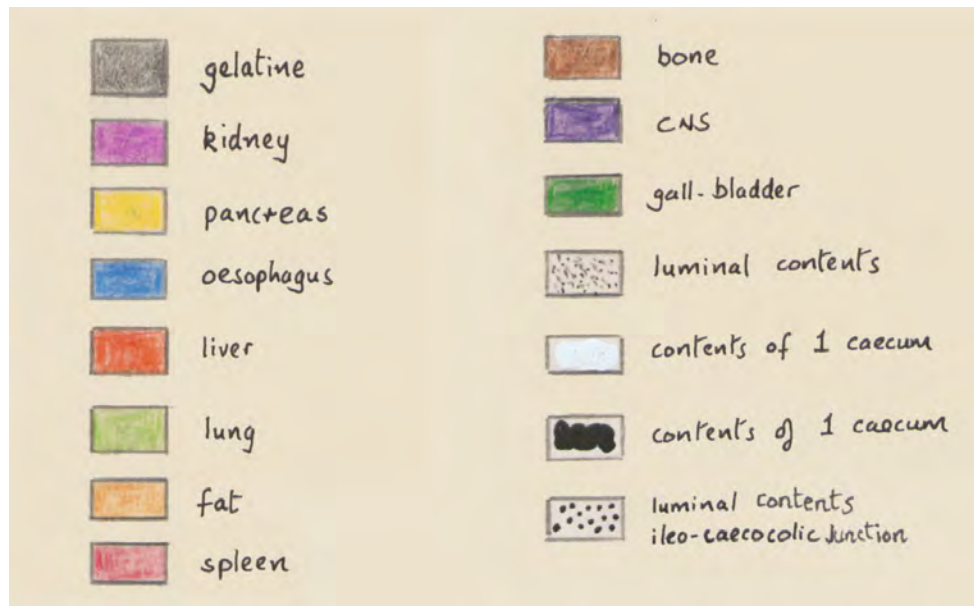 gelatine
kidney
pancreas
oesophagus
liver
lung
fat
spleen
bone
CNS
gall-bladder
luminal contents
contents of 1 caecum
contents of 1 caecum
luminal contents
ileo-caecocolic Junction